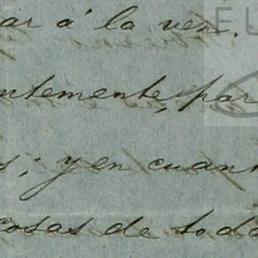 ar á la vez.
ntemente, por
s; y en cuant
cosas de toda